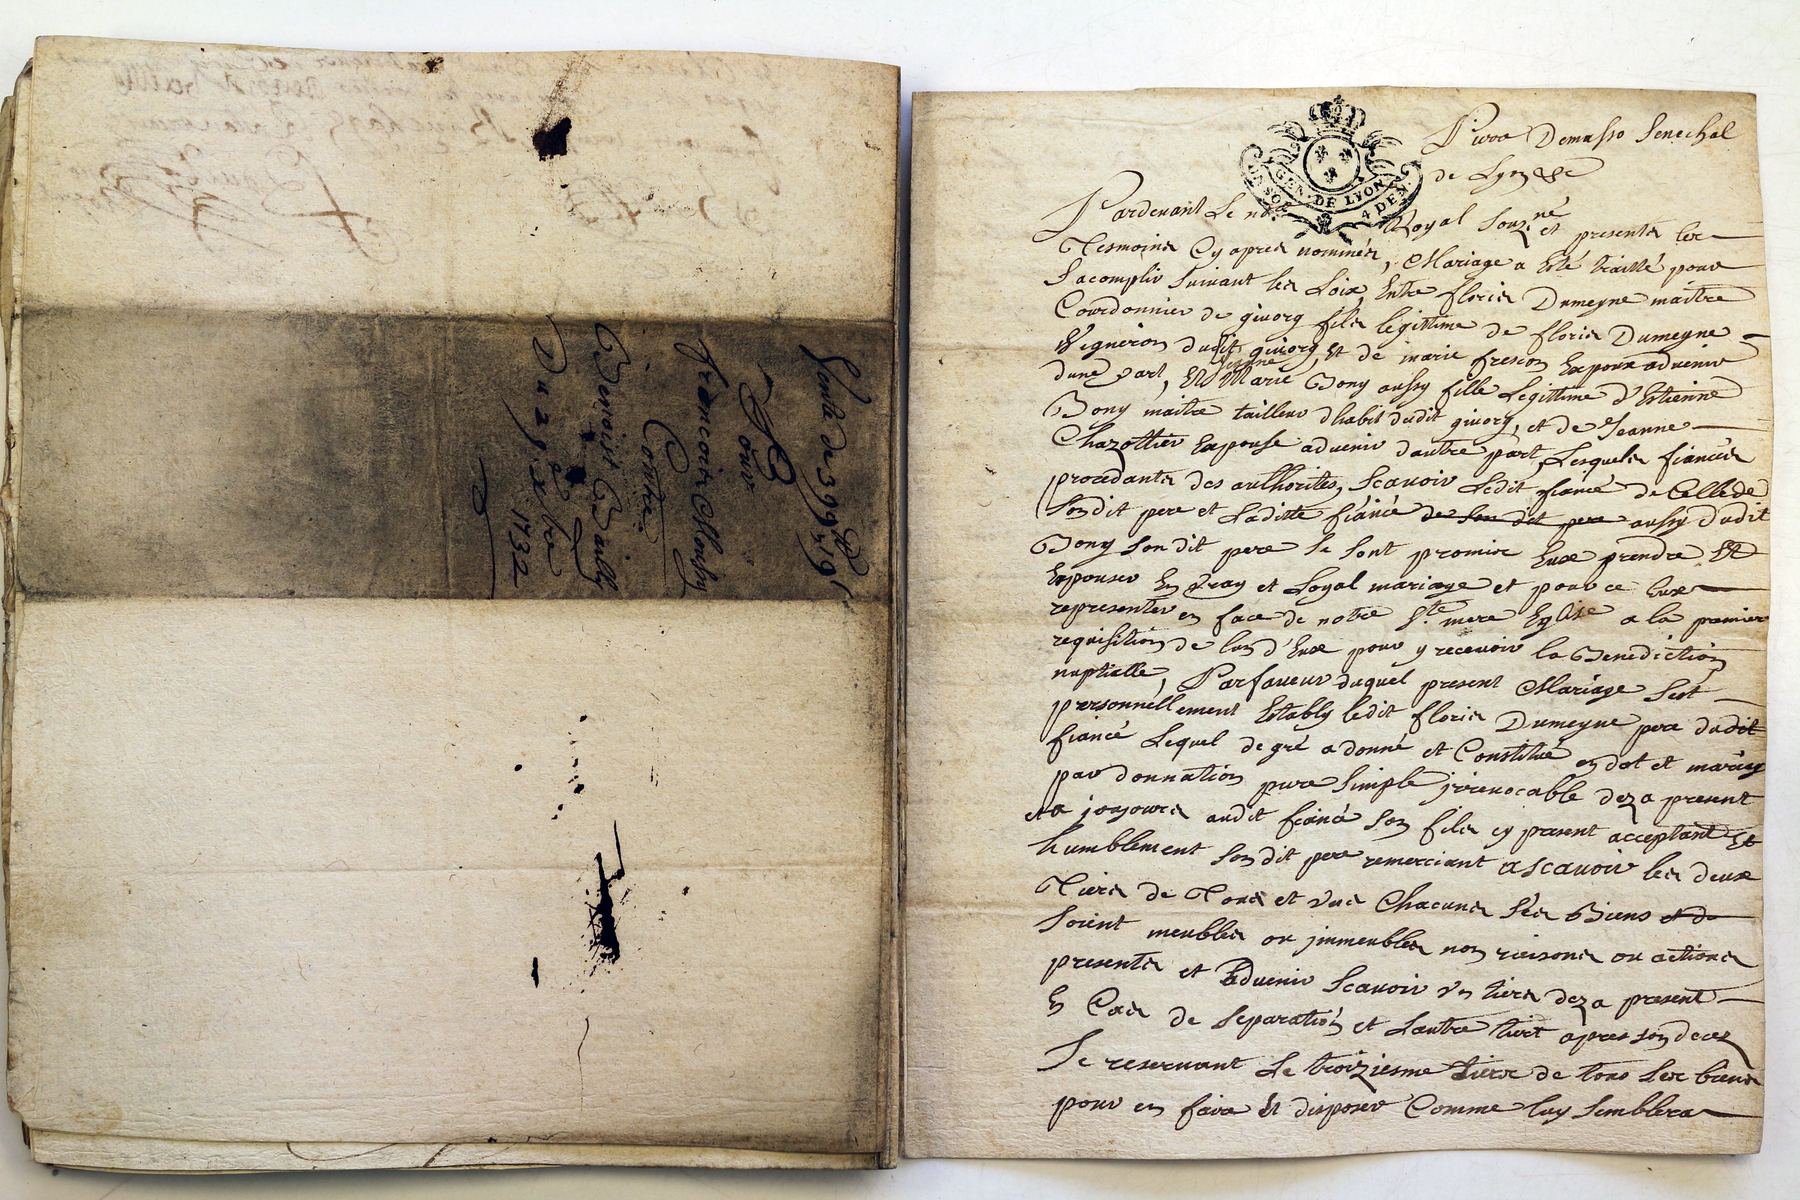 Vente de 399
Pour
francois
Contre
Benoist Bailly
Du 29e xbre
1732
Senechal
de Lyon &c
GEN. DE LYON
4 DEN.
Pardevant Le no Royal Souz.né et presents les
Tesmoins Cy apres nommés, Mariage a Esté traitté pour
Sacomplir Suivant les Loix, Entre floris Dumeyne maitre
Courdonnier de givorg fils legittime de floris Dumeyne
Vigneron dudit givorg, et de marie fresion Expoux advenir
dune part, Et Marie Bony aussy fille Legittime d'Estienne
Bony maitre tailleur dhabit dudit givorg, et de Jeanne
Chazottier Expouse advenir dautre part, Lesquels fiancés
procedants des authorites, Scavoir Ledit fiancé de Celle de
Son dit pere et Laditte fiancé de Son dit pere aussy dudit
Bony Son dit pere Se Sont promis Eux prendre Et
Expouser En vray et Loyal mariage et pour ce Eux
representer en face de notre Ste mere Eglise a la premier
requisition de lun d'Eux pour y recevoir la Benediction
nuptielle, Parfaveur duquel present Mariage Sest
personnellement Estably ledit floris Dumeyne pere dudit
fiancé Lequel de gré a donné et Constitué en dot et mariage
par donnation pure Simple jrrevocable deza present
et a jousjours audit fiancé Son fils cy present acceptant Et
humblement Son dit pere remerciant a Scavoir les deux
Tiers de Tous et uns Chacuns Sés Biens et do
Soient meubles ou jmmeubles nom raisons ou actions
presents et advenir Scavoir un tiers deza present
En Cas de Separation et Lautre tiers apres son deces
Se reservant Le troiziesme tiers de tous Ses biens
pour en faire Et disposer Comme luy Semblera